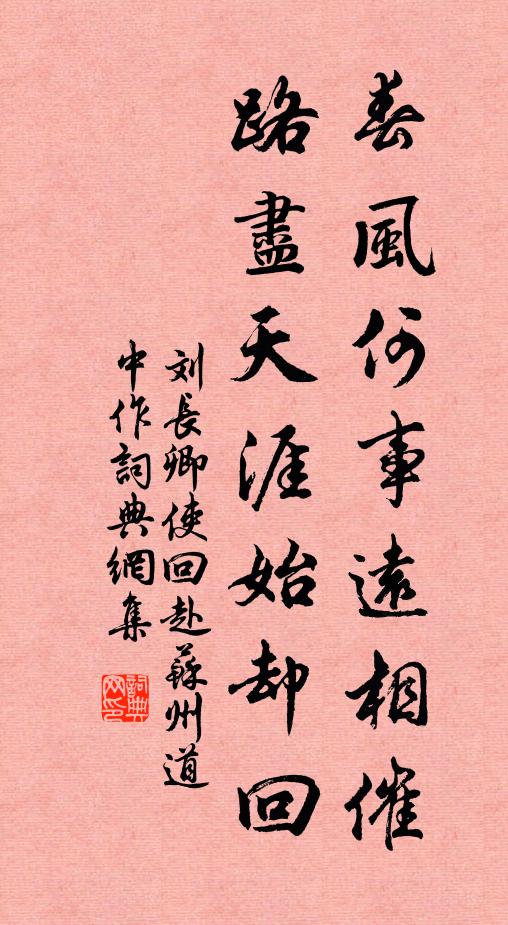 春風何事遠相催
路盡天涯始却回
刘長卿使回赴蘇州道
中作詞典網集
詞典網印